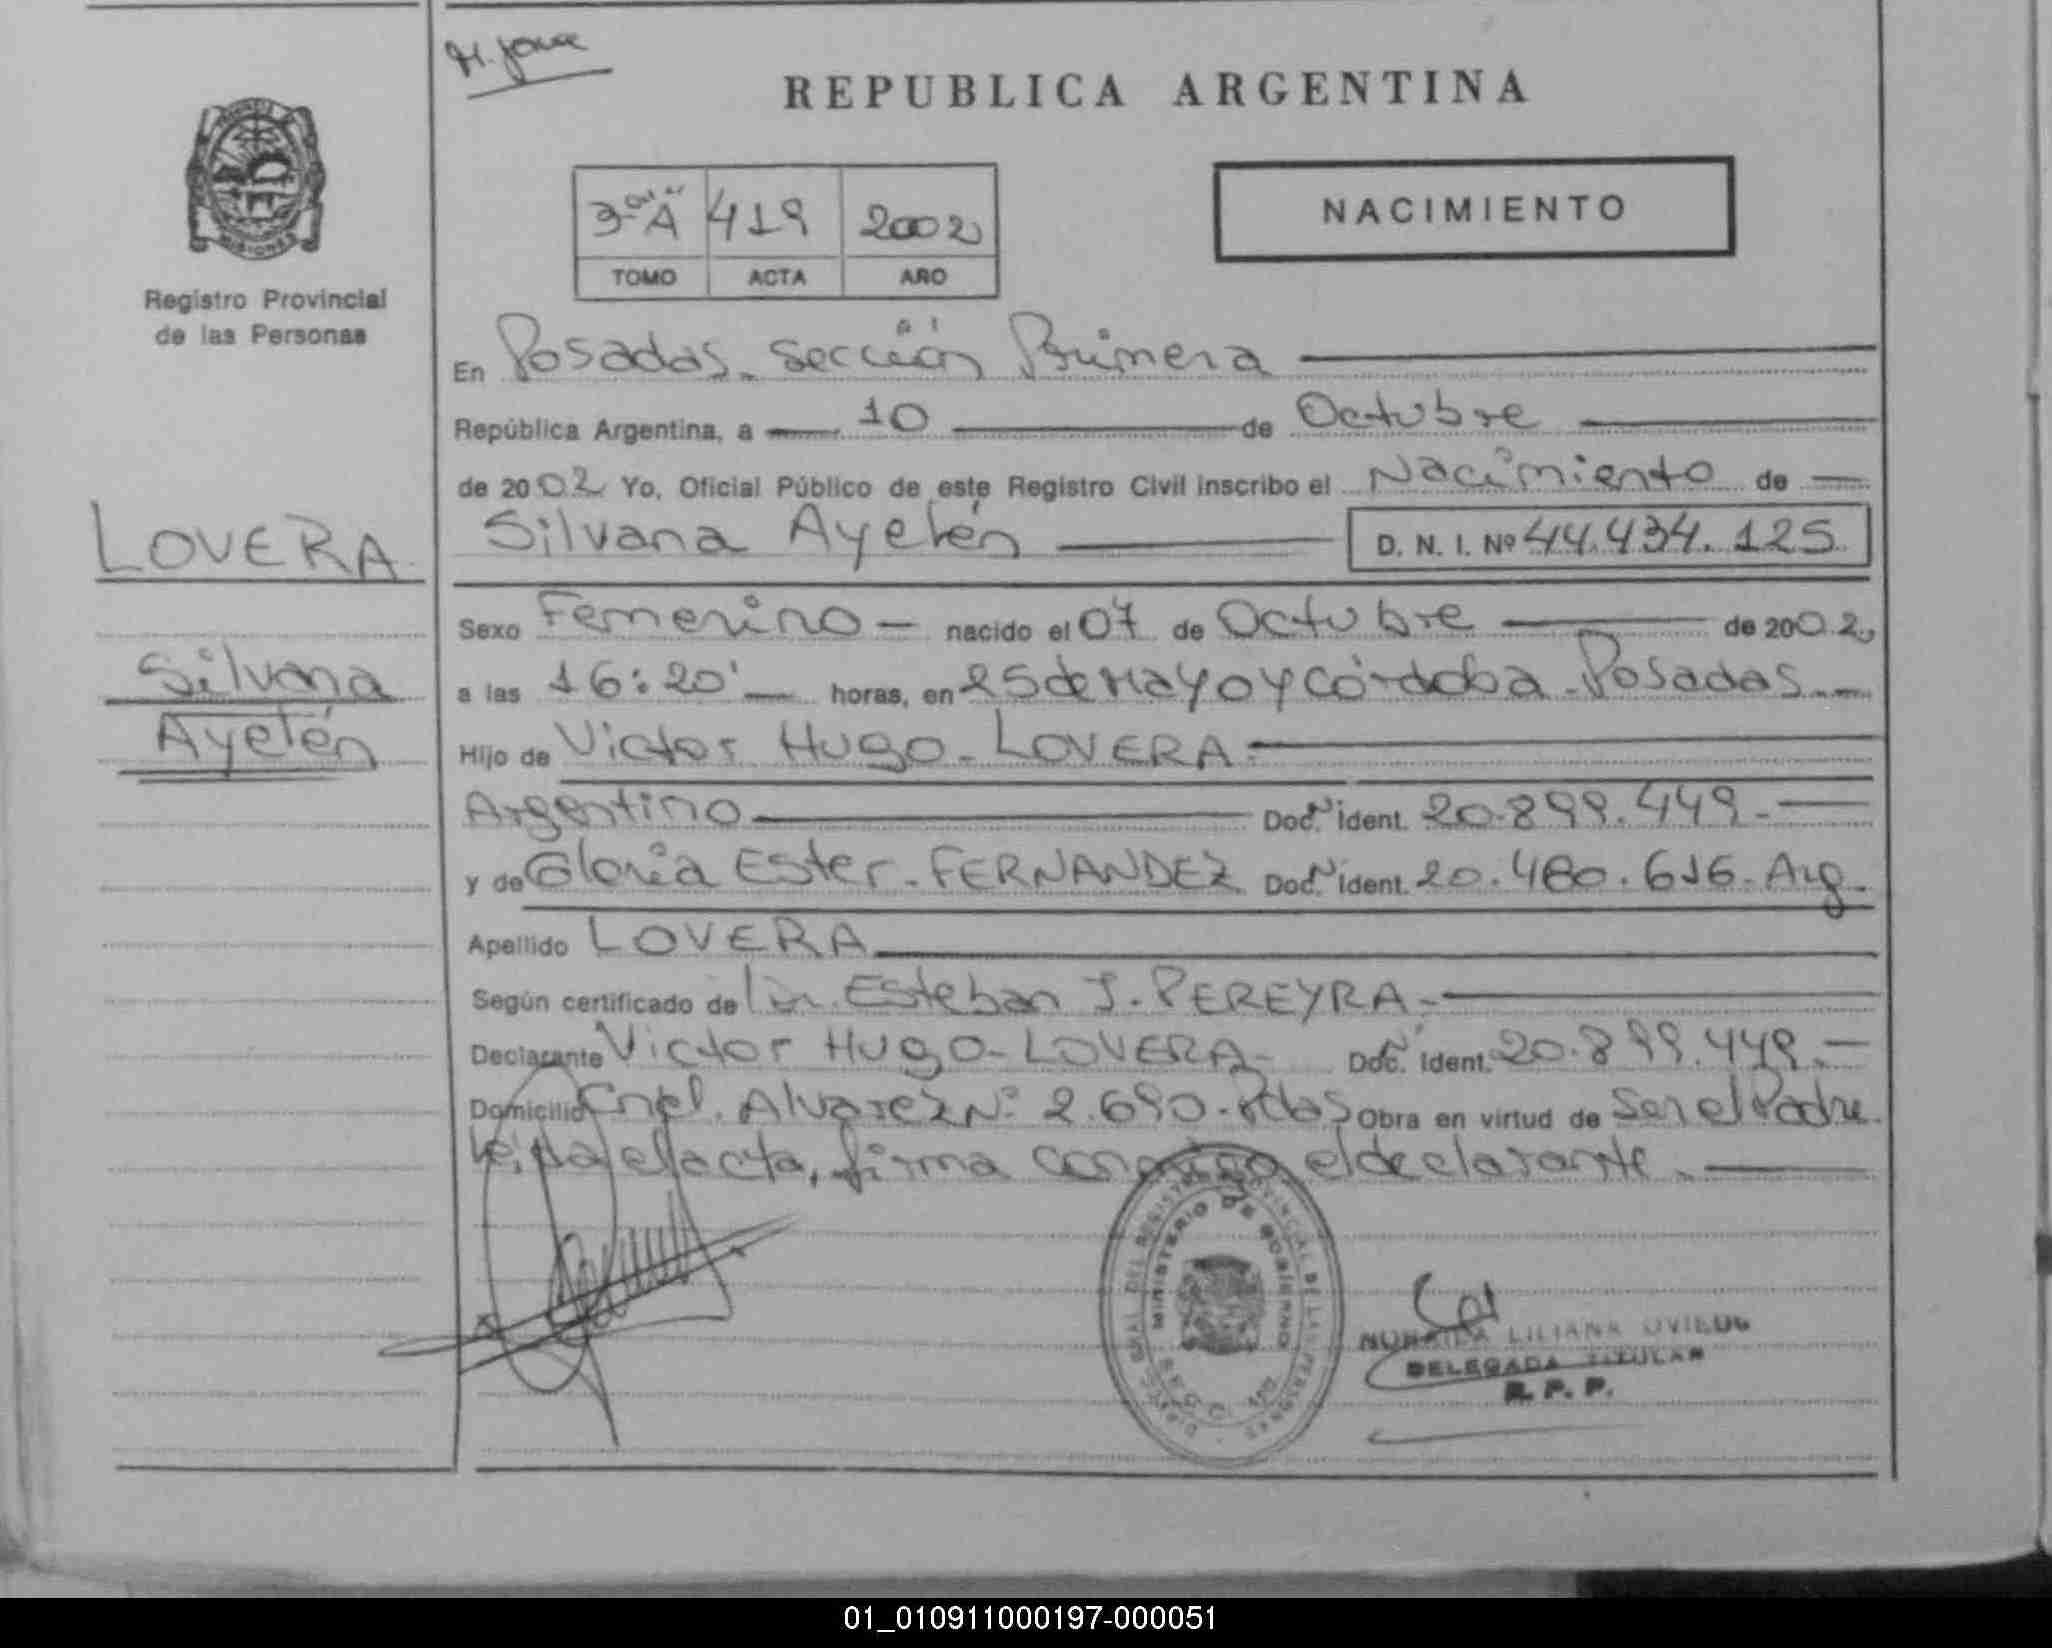 REPUBLICA ARGENTINA
NACIMIENTO
3º "A" 419 2002
TOMO ACTA AÑO
MISIONES
Registro Provincial
de las Personas
En Posadas - Sección Primera
República Argentina, a 10 de Octubre
de 2002 Yo, Oficial Público de este Registro Civil inscribo el Nacimiento de
LOVERA
Silvana Ayelén D. N. I. Nº 44.434.125
Sexo Femenino - nacido el 07 de Octubre de 2002
Silvana
a las 16:20' horas, en 25 de Mayo y Córdoba - Posadas
Ayelén
Hijo de Victor Hugo - LOVERA
Argentino Doc. Nº Ident. 20.899.449.-
y de Gloria Ester - FERNANDEZ Doc. Nº Ident. 20.480.616 - Arg.
Apellido LOVERA
Según certificado de Dr. Esteban J. PEREYRA.-
Declarante Victor Hugo - LOVERA - Doc. Nº Ident. 20.899.449.-
Domicilio Cnel. Alvarez Nº 2.690 - Pdas Obra en virtud de Ser el Padre
leída el acta, firma conmigo el declarante.
MINISTERIO DE GOBIERNO
LILIANA OVIEDO
DELEGADA TITULAR
R. P. P.
01_010911000197-000051